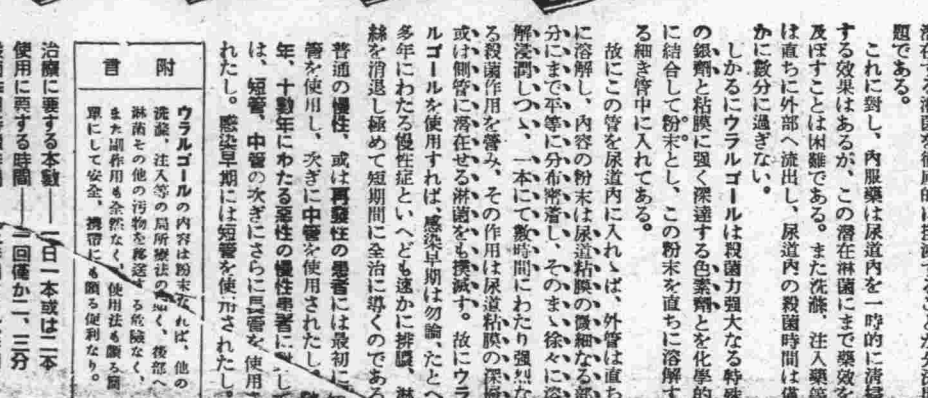 潜在する淋菌を徹底的に撲滅することが分
題である。
これに對し、內服藥は尿道內を一時的に淸掃
する效果はあるが、この潜在淋菌にまで藥效を
及ぼすことは困難である。また洗滌、注入藥等
は直ちに外部へ流出し、尿道內の殺菌時間は僅
かに數分に過ぎない。
しかるにウラルゴールは殺菌力强大なる特殊
の銀劑と粘膜に强く深達する色素劑とを化學的
に結合して粉末とし、この粉末を直ちに溶解す
る細き管中に入れてある。
故にこの管を尿道內に入れゝば、外管は直ち
に溶解し、內容の粉末は尿道粘膜の微細なる部
分にまで平等に分布密着し、そのまゝ徐々に溶
解浸潤しつゝ、一本にて數時間にわたり强烈な
る殺菌作用を營み、その作用は尿道粘膜の深
或は側管に潜在せる淋菌をも撲滅す。故にウラ
ルゴールを使用すれば、感染早期は勿論、たとへ
多年にわたる慢性症といへども速かに排膿、淋
絲を消退し極めて短期間に全治に導くのである
普通の慢性、或は再發性の患者には最初に
管を使用し、次ぎに中管を使用されたし。
年、十數年にわたる惡性の慢性患者に對して
は、短管、中管の次ぎにさらに長管を使用
れたし。感染早期には短管を使用されたし。
附言
ウラルゴールの內容は粉末なれば、他の
洗滌、注入等の局所療法の如く、後部へ
淋菌その他の汚物を移送する危險なく、
また副作用も全然なく、使用法も頗る簡
單にして安全、携帶にも頗る便利なり。
治療に要する本數――一日一本或は二本
使用に要する時間――一回僅か二、三分